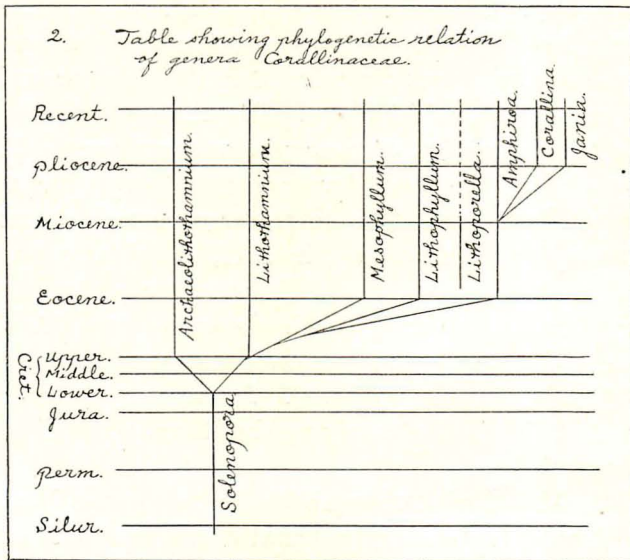 2. Table showing phylogenetic relation
of genera Corallinaceae.
Recent.
Pliocene.
Miocene.
Eocene.
Cret.
Upper.
Middle.
Lower.
Jura.
Perm.
Silur.
Archaeolithothamnium.
Lithothamnium.
Mesophyllum.
Lithophyllum.
Lithoporella.
Amphiroa.
Corallina.
Jania.
Solenopora